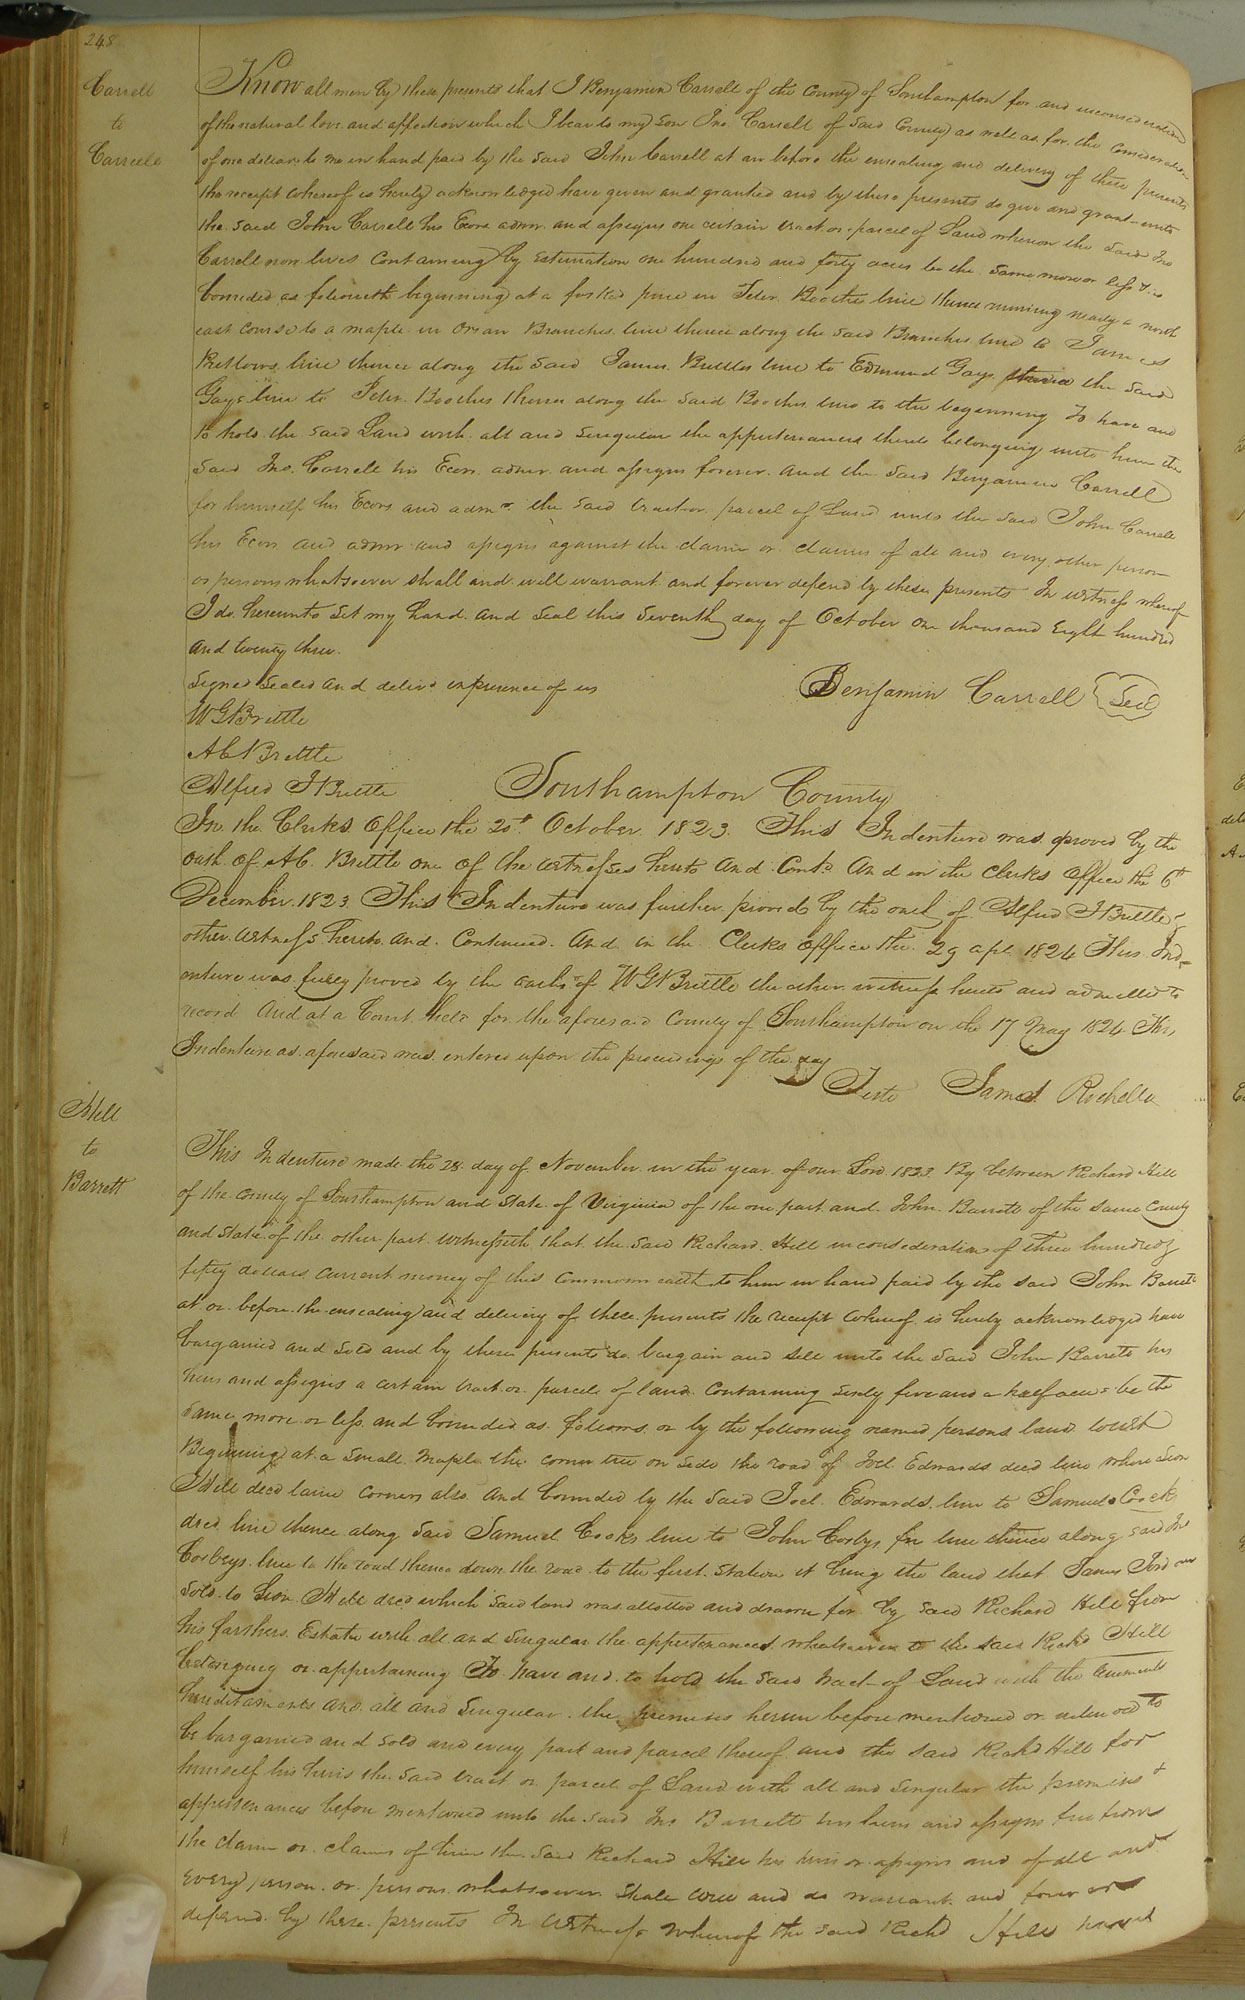 248
Carrell
to
Carrell
Know all men by these presents that I Benjamin Carrell of the County of Southampton for and inconsideration
of the natural love and affection which I bear to my son Jno. Carrell of said County as well as for the consideration
of one dollar to me in hand paid by the said John Carrell at or before the ensealing and delivery of these presents
the receipt whereof is hereby acknowledged have given and granted and by these presents do give and grant unto
the said John Carrell his Exors admr. and assigns one certain tract or parcel of Land whereon the said Jno
Carrell now lives Containing by estimation one hundred and forty acres be the same more or less & is
bounded as followeth beginning at a forked pine in Peter Boothes line thence running nearly a north
east course to a maple in Branches line thence along the said Branches line to James
Brittles line thence along the said James Brittles line to Edmund Gays the said
Gays line to Peter Boothes thence along the said Boothes line to the beginning To have and
to hold the said Land with all and singular the appurtenances thereto belonging unto him the
said Jno. Carrell his Exors. admr. and assigns forever. And the said Benjamin Carrell
for himself his Exors and admr. the said tract or parcel of Land unto the said John Carrell
his Exors and admr and assigns against the claim or claims of all and every other person
or persons whatsoever shall and will warrant and forever defend by these presents In witness whereof
I do hereunto set my hand and seal this Seventh day of October one thousand Eight hundred
and twenty three.
Signed Sealed and deliv'd in presence of us
Benjamin Carrell Seal
WGBrittle
ACBrittle
Alfred JBrittle
Southampton County
In the Clerks Office the 20th October 1823. This Indenture was proved by the
oath of AC. Brittle one of the witnesses hereto And Contd. And in the Clerks Office the 6th
December 1823 This Indenture was further proved by the oath of Alfred JBrittle
other witness hereto And Continued. And in the Clerks Office the 29 apl 1824 This Ind-
enture was fully proved by the oath of WGBrittle the other witness hereto and admitted to
record And at a Court held for the aforesaid County of Southampton on the 17 May 1824 This
Indenture as aforesaid was entered upon the proceedings of the day
Teste James Rochelle
Hill
to
Barrett
This Indenture made the 28 day of November in the year of our Lord 1823 By between Richard Hill
of the County of Southampton and State of Virginia of the one part and John Barrett of the same County
and State of the other part witnesseth that the said Richard Hill inconsideration of three hundred
fifty dollars current money of this Commonwealth to him in hand paid by the said John Barrett
at or before the ensealing and delivery of these presents the receipt whereof is hereby acknowledged have
bargained and sold and by these presents do bargain and sell unto the said John Barrett his
heirs and assigns a certain tract or parcele of land Containing sixty five and a half acres be the
same more or less and bounded as follows or by the following named persons land to wit
Beginning at a small maple the corner tree on side the road of Joel Edwards decd line where
Hill decd corners also And bounded by the said Joel Edwards line to Samuel Cook
decd line thence along said Samuel Cooks line to John Corbys line thence along said Jno
Corbeys line to the road thence down the road to the first Station it being the land that James Jordan
sold to Hill decd which said land was allotted and drawn for by said Richard Hill from
his farthers Estate with all and singular the appurtenances whatsoever to the said Richd Hill
belonging or appertaining To have and to hold the said tract of Land with the tenements
hereditaments and all and singular the premises herein before mentioned or intended to
be bargained and sold and every part and parcel thereof and the said Richd Hill for
himself his heirs the said tract or parcel of Land with all and singular the premises &
appurtenances before mentioned unto the said Jno Barrett his heirs and assigns free from
the claim or claims of him the said Richard Hill his heirs or assigns and of all and
every person or persons whatsoever shall will and do warrant and forever
defend by these presents In witness whereof the said Richd Hill